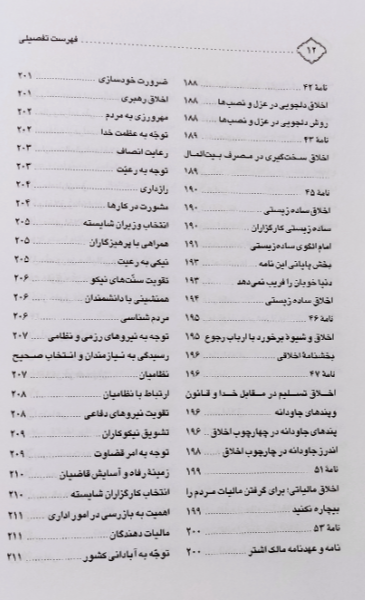 ۱۲ فهرست تفصیلی
نامهٔ ۴۲ ۱۸۸
اخلاق دلجویی در عزل و نصب‌ها ۱۸۸
روش دلجویی در عزل و نصب‌ها ۱۸۸
نامهٔ ۴۳ ۱۸۹
اخلاق سخت‌گیری در مصرف بیت‌المال
۱۸۹
نامهٔ ۴۵ ۱۹۰
اخلاق ساده‌زیستی ۱۹۰
ساده‌زیستی کارگزاران ۱۹۰
امام الگوی ساده‌زیستی ۱۹۱
بخش پایانی این نامه ۱۹۳
دنیا خوبان را فریب نمی‌دهد ۱۹۳
اخلاق ساده زیستی ۱۹۴
نامهٔ ۴۶ ۱۹۵
اخلاق و شیوهٔ برخورد با ارباب رجوع ۱۹۵
بخشنامهٔ اخلاقی ۱۹۶
نامهٔ ۴۷ ۱۹۶
اخلاق تسلیم در مقابل خدا و قانون
و پندهای جاودانه ۱۹۶
پندهای جاودانه در چهارچوب اخلاق ۱۹۶
اندرز جاودانه در چارچوب اخلاق ۱۹۸
نامهٔ ۵۱ ۱۹۹
اخلاق مالیاتی: برای گرفتن مالیات مردم را
بیچاره نکنید ۱۹۹
نامهٔ ۵۳ ۲۰۰
نامه و عهدنامه مالک اشتر ۲۰۰
ضرورت خودسازی ۲۰۱
اخلاق رهبری ۲۰۱
مهرورزی به مردم ۲۰۲
توجّه به عظمت خدا ۲۰۲
رعایت انصاف ۲۰۳
توجه به رعیّت ۲۰۳
رازداری ۲۰۴
مشورت در کارها ۲۰۴
انتخاب وزیران شایسته ۲۰۵
همراهی با پرهیزکاران ۲۰۵
نیکی به رعیت ۲۰۵
تقویت سنّت‌های نیکو ۲۰۶
همنشینی با دانشمندان ۲۰۶
مردم شناسی ۲۰۶
توجه به نیروهای رزمی و نظامی ۲۰۷
رسیدگی به نیازمندان و انتخاب صحیح
نظامیان ۲۰۷
ارتباط با نظامیان ۲۰۸
تقویت نیروهای دفاعی ۲۰۸
تشویق نیکوکاران ۲۰۹
توجه به امر قضاوت ۲۰۹
زمینهٔ رفاه و آسایش قاضیان ۲۱۰
انتخاب کارگزاران شایسته ۲۱۰
اهمیت به بازرسی در امور اداری ۲۱۱
مالیات دهندگان ۲۱۱
توجّه به آبادانی کشور ۲۱۱